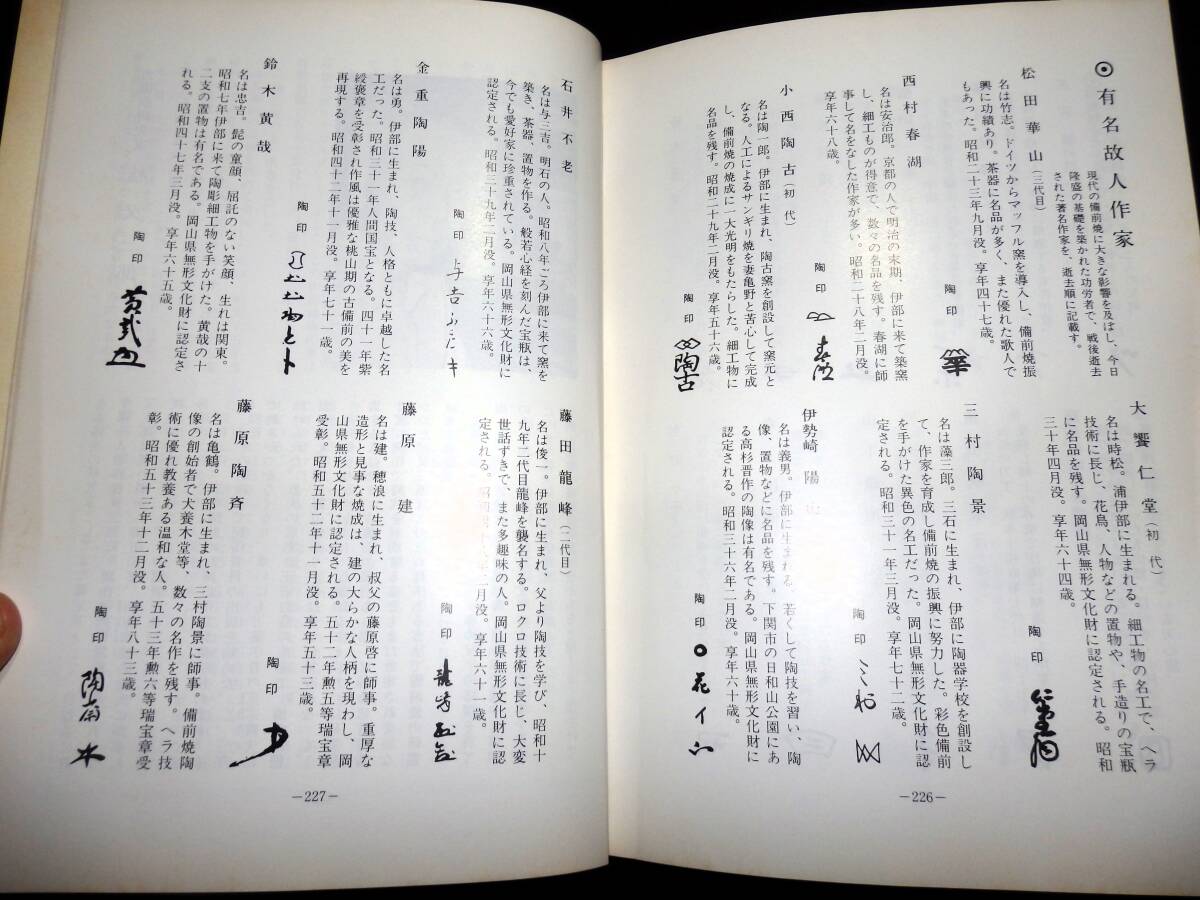 ◉有名故人作家
現代の備前焼に大きな影響を及ぼし、今日
隆盛の基礎を築かれた功労者で、戦後逝去
された著名作家を、逝去順に記載す。
松田華山(三代目)
名は竹志。ドイツからマッフル窯を導入し、備前焼振
興に功績あり。茶器に名品が多く、また優れた歌人で
もあった。昭和二十三年九月没。享年四十七歳。
陶印
西村春湖
名は安治郎。京都の人で明治の末期、伊部に来て築窯
し、細工ものが得意で、数々の名品を残す。春湖に師
事して名をなした作家が多い。昭和二十八年二月没。
享年六十八歳。
陶印
小西陶古(初代)
名は陶一郎。伊部に生まれ、陶古窯を創設して窯元と
なる。人工によるサンギリ焼を妻亀野と苦心して完成
し、備前焼の焼成に一大光明をもたらした。細工物に
名品を残す。昭和二十九年二月没。享年五十六歳。
陶印
陶古
大饗仁堂(初代)
名は時松。浦伊部に生まれる。細工物の名工で、ヘラ
技術に長じ、花鳥、人物などの置物や、手造りの宝瓶
に名品を残す。岡山県無形文化財に認定される。昭和
三十年四月没。享年六十四歳。
陶印
三村陶景
名は藻三郎。三石に生まれ、伊部に陶器学校を創設し
て、作家を育成し備前焼の振興に努力した。彩色備前
を手がけた異色の名工だった。岡山県無形文化財に認
定される。昭和三十一年三月没。享年七十二歳。
陶印
伊勢崎陽
名は義男。伊部に生まれる。若くして陶技を習い、陶
像、置物などに名品を残す。下関市の日和山公園にあ
る高杉晋作の陶像は有名である。岡山県無形文化財に
認定される。昭和三十六年二月没。享年六十歳。
陶印
花イ
—226—
石井不老
名は与三吉。明石の人。昭和八年ごろ伊部に来て窯を
築き、茶器、置物を作る。般若心経を刻んだ宝瓶は、
今でも愛好家に珍重されている。岡山県無形文化財に
認定される。昭和三十九年二月没。享年六十六歳。
陶印
金重陶陽
名は勇。伊部に生まれ、陶技、人格ともに卓越した名
工だった。昭和三十一年人間国宝となる。四十一年紫
綬褒章を受彰され作風は優雅な桃山期の古備前の美を
再現する。昭和四十二年十一月没。享年七十一歳。
陶印
鈴木黄哉
名は忠吉。髭の童顔、屈託のない笑顔、生れは関東。
昭和七年伊部に来て陶彫細工物を手がけた。黄哉の十
二支の置物は有名である。岡山県無形文化財に認定さ
れる。昭和四十七年三月没。享年六十五歳。
陶印
藤田龍峰(二代目)
名は俊一。伊部に生まれ、父より陶技を学び、昭和十
九年二代目龍峰を襲名する。ロクロ技術に長じ、大変
世話ずきで、また多趣味の人。岡山県無形文化財に認
定される。昭和 二月没。享年六十一歳。
陶印
藤原建
名は建。穂浪に生まれ、叔父の藤原啓に師事。重厚な
造形と見事な焼成は、建の大らかな人柄を現わし、岡
山県無形文化財に認定される。五十二年勲五等瑞宝章
受彰。昭和五十二年十一月没。享年五十三歳。
陶印
藤原陶斉
名は亀鶴。伊部に生まれ、三村陶景に師事。備前焼陶
像の創始者で犬養木堂等、数々の名作を残す。ヘラ技
術に優れ教養ある温和な人。五十三年勲六等瑞宝章受
彰。昭和五十三年十二月没。享年八十三歳。
陶印
—227—